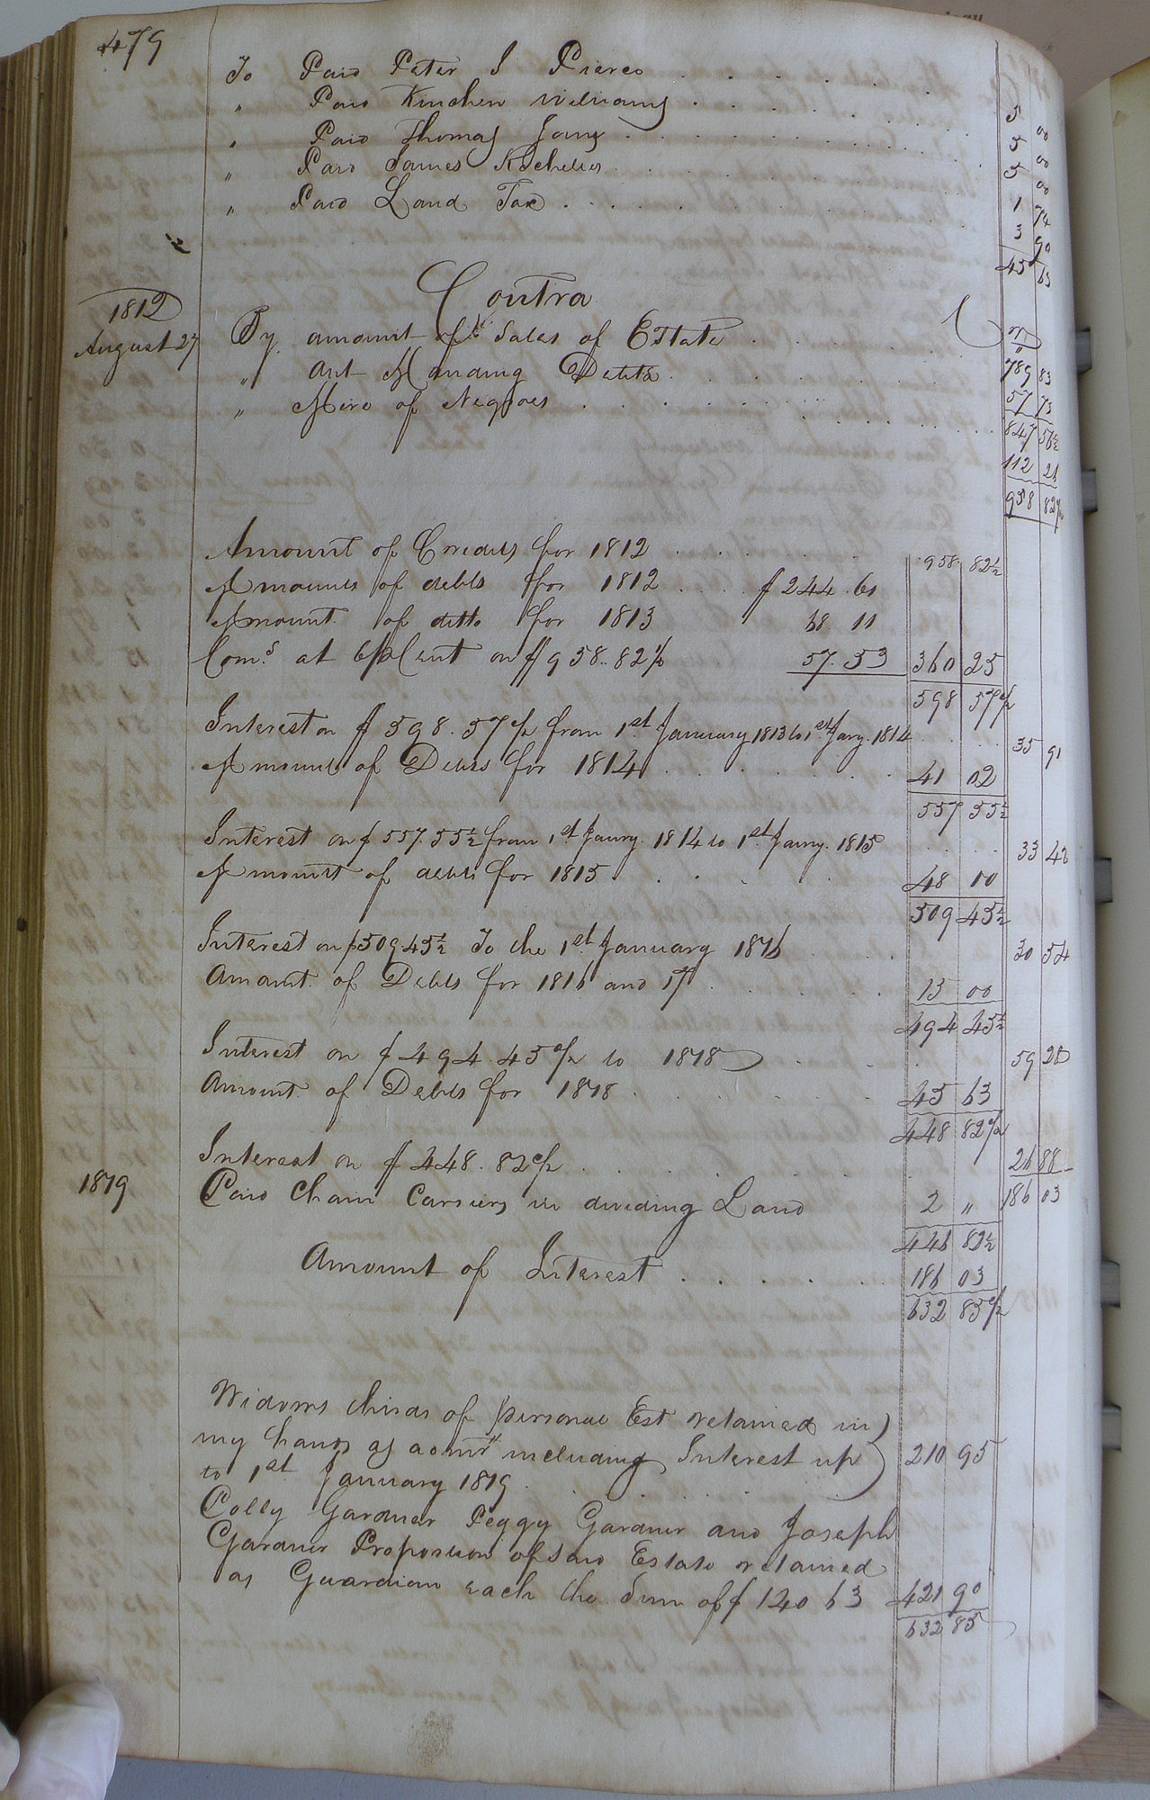 479
To Paid Peter J Pierce . . . . .
" Paid Kinchen Williams . . . . . 5 00
" Paid Thomas Jony . . . . . 5 00
" Paid James 5 00
" Paid Land Tax . . . . . 1 74
3 90
45 63
Contra
1812
August 27 By amount of Sales of Estate . . . . . 789 83
" Amt Standing Debts . . . . . 57 73
847 56½
" Hire of Negroes . . . . . 112 26
958 82½
Amount of Credits for 1812 . . . . . 958 82½
Amount of debts for 1812 . . . $ 244.61
Amount of ditto for 1813 58 11
Coms at 6 pr Cent on $ 958..82½ 57.53 360 25
598 57½
Interest on $ 598.57½ from 1st January 1813 to 1st Jany. 1814 . . . 35 91
Amount of Debts for 1814 . . . . . 41 02
557 55½
Interest on $ 557.55½ from 1st Janry. 1814 to 1st Janry. 1815 . . . 33 42
Amount of debts for 1815 . . . . . 48 00
509 45½
Interest on $509 45½ To the 1st January 1816 . . . 30 54
Amount of Debts for 1816 and 17 . . . . . 15 00
494 45½
Interest on $ 494.45½ to 1818 . . . 59 28
Amount of Debts for 1818 . . . . . 45 63
448 82½
Interest on $ 448.82½ . . . . . 26 88
1819 Paid Chain Carriers in dividing Land 2 " 186 03
446 82½
Amount of Interest . . . . . 186 03
632 85½
Widows thirds of personal Est retained in
my hands as admr including Interest up 210 95
to 1st January 1819 . . . . .
Polly Gardner Peggy Gardner and Joseph
Gardner Proportion of said Estate retained
as Guardian each the Sum of $ 140 63 421 90
632 85